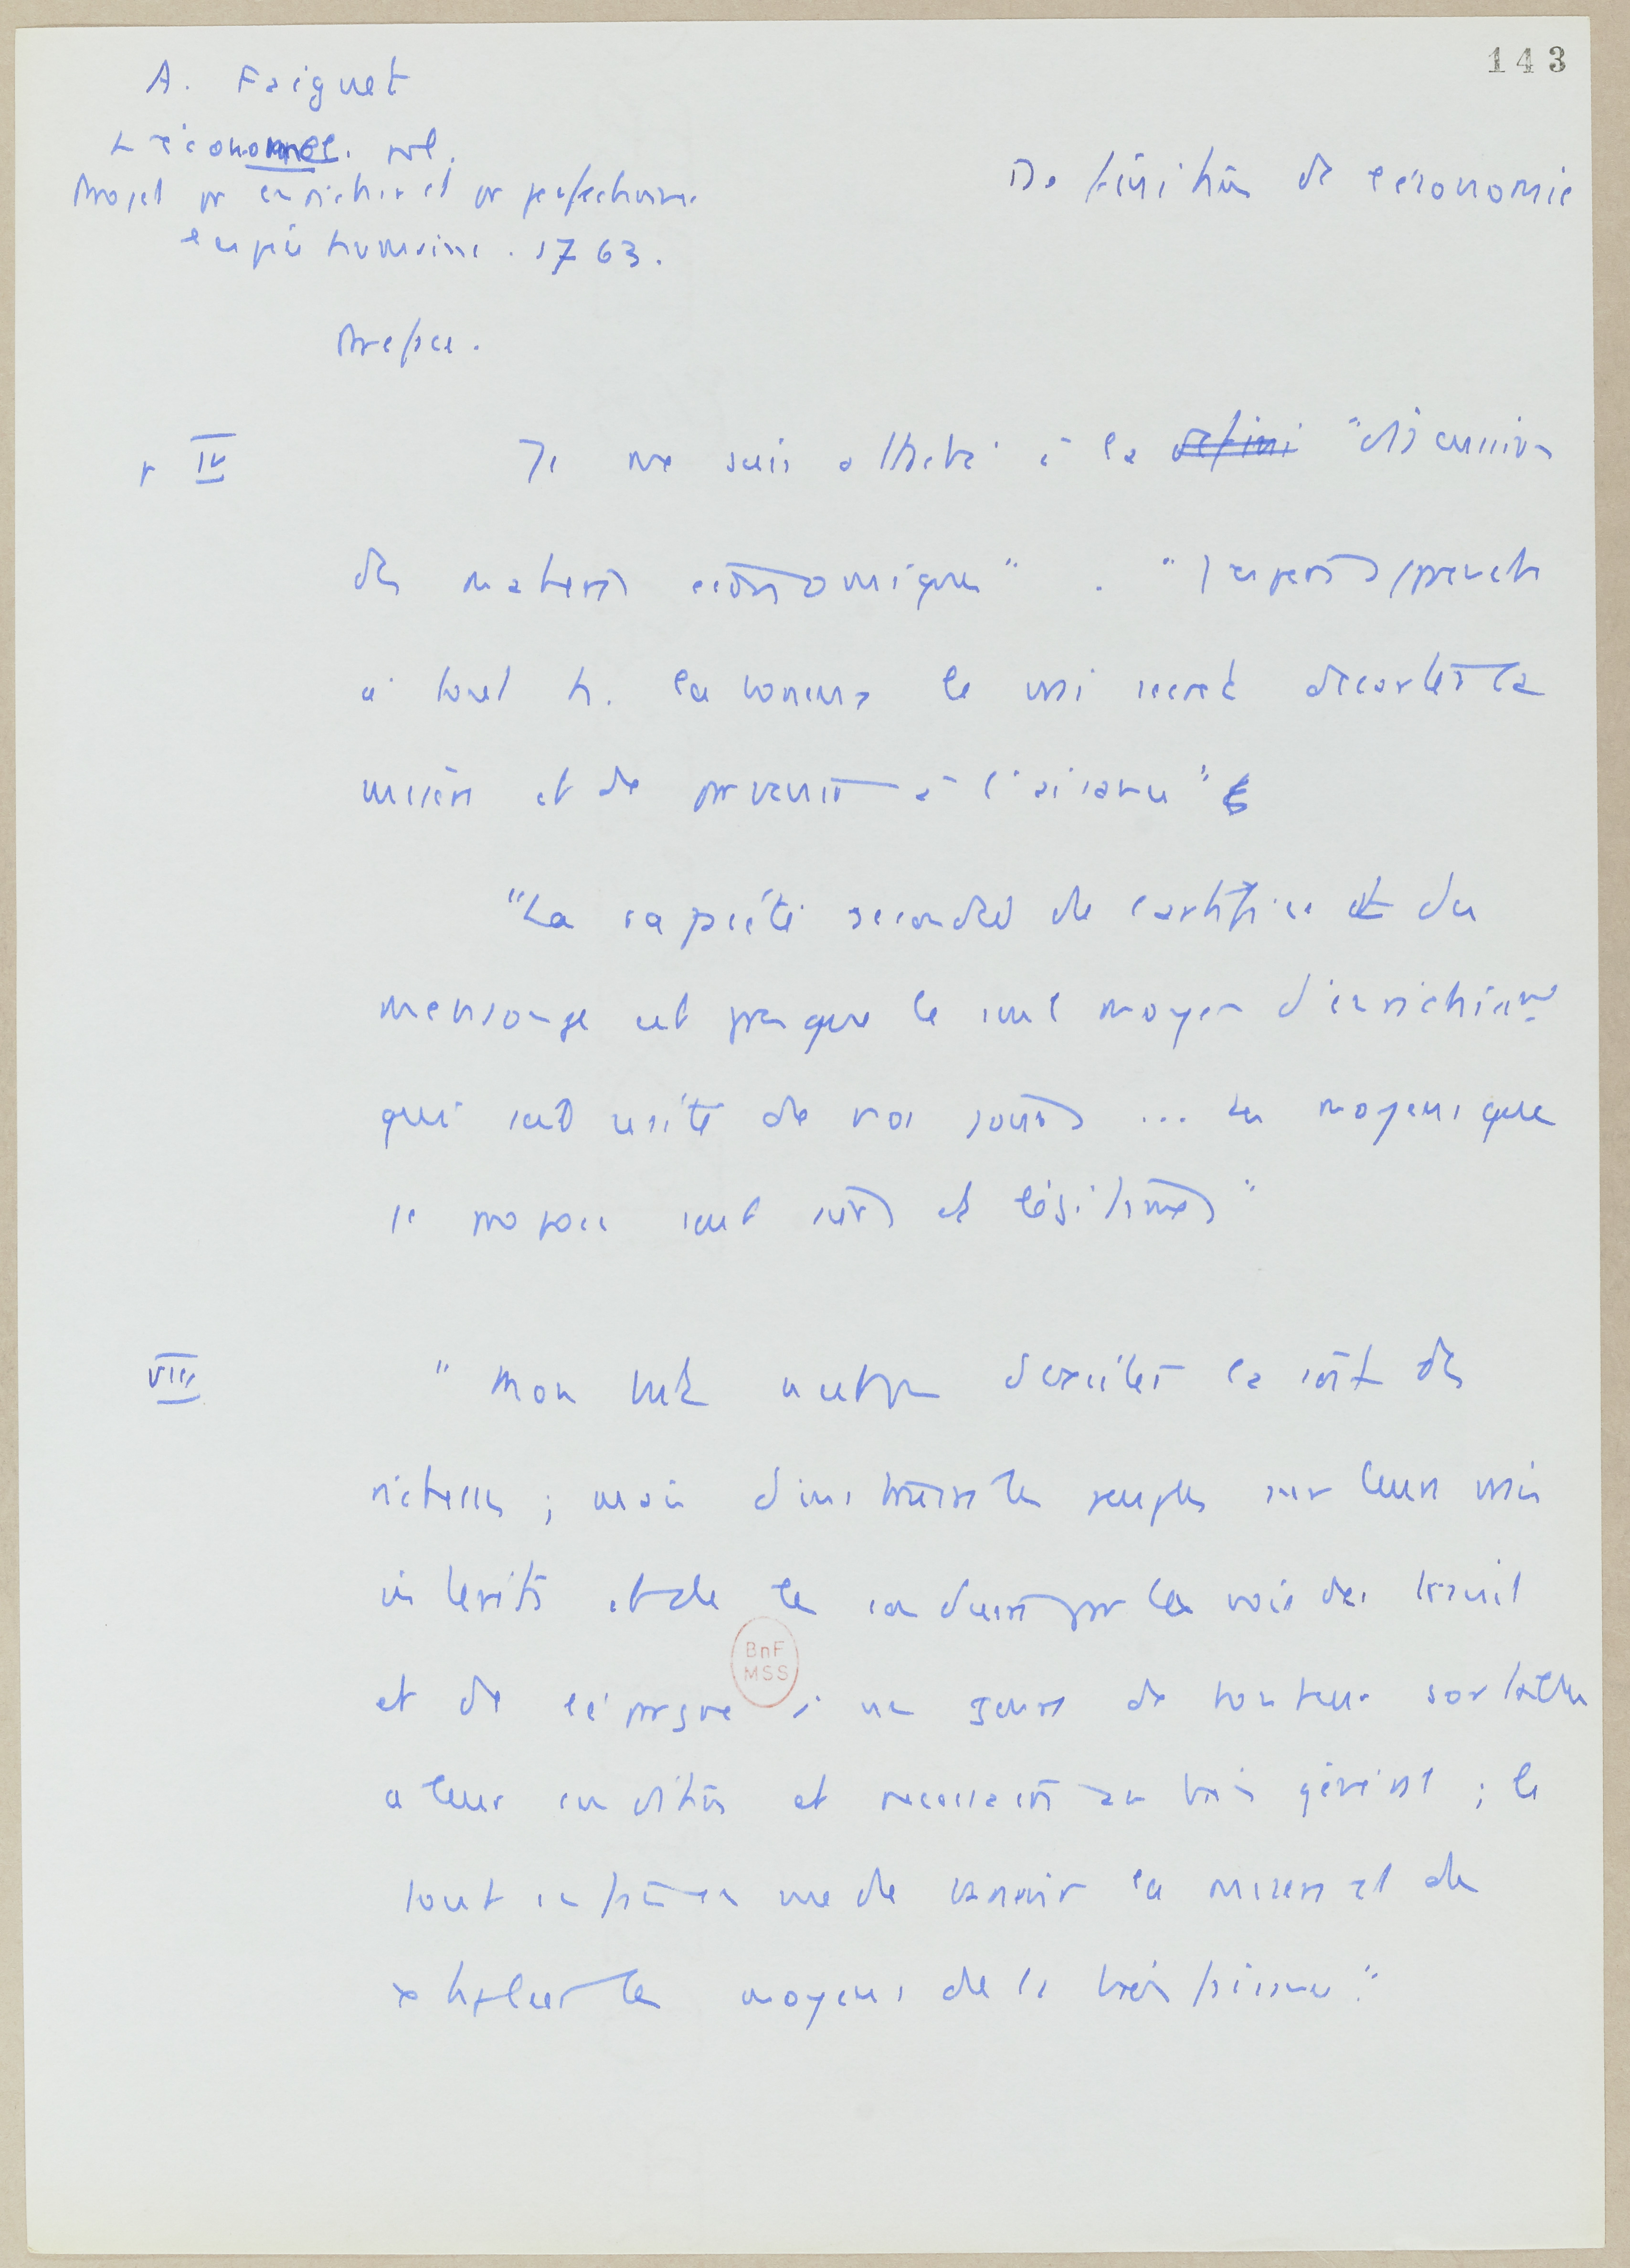 143
A. Faiguet
L'économie. pol.
Projet pr enrichir et pr perfectionner
l'espèce humaine. 1763.
Définition de l'économie
Préface.
p IV Je me suis attaché à la défini "discussion
des matières économiques". "J'espère apprendre
à tout h. laborieux le vrai secret d'écarter la
misère et de parvenir à l'aisance"
"La rapacité secondée de l'artifice et du
mensonge est presque le seul moyen d'enrichissemt
qui soit usité de nos jours ... Les moyens que
je propose sont sûrs et légitimes"
VIII "Mon but n'est pas d'exciter la soif des
richesses ; mais d'instruire les peuples sur leurs vrais
intérêts et de les conduire par la voie du travail
et de l'épargne à un genre de bonheur sortable
à leur condition et nécessaire au bien général ; le
tout en vue de bannir la misère et de
les moyens de la bienfaisance."
BnF
MSS